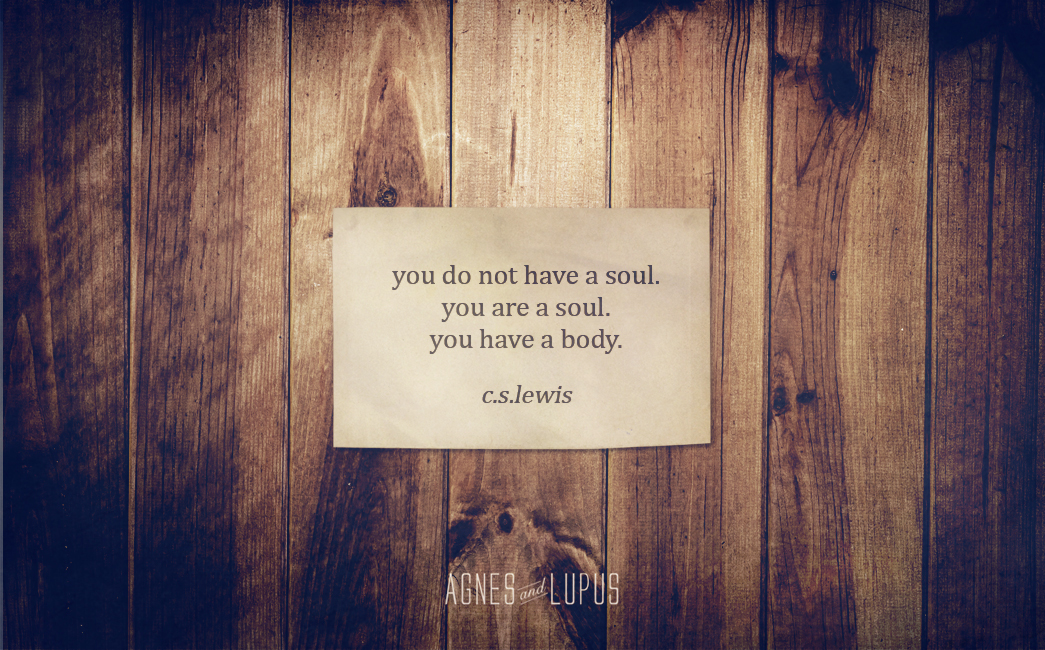 you do not have a soul.
you are a soul.
you have a body.
c.s.lewis
AGNES and LUPUS